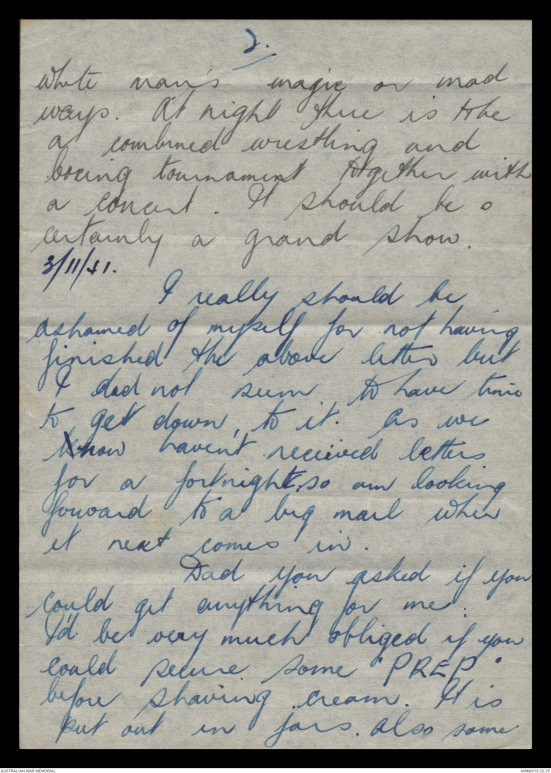 2.
white man's magic or mad
ways. At night there is to be
a combined wrestling and
boxing tournament together with
a concert. It should be
certainly a grand show.
3/11/41.
I really should be
ashamed of myself for not having
finished the above letter but
I did not seem to have time
to get down to it. As we
know haven't received letters
for a fortnight, so am looking
forward to a big mail when
it next comes in.
Dad you asked if you
could get anything for me.
I'd be very much obliged if you
could secure some "PREP"
before shaving cream. It is
put out in jars. also some
AUSTRALIAN WAR MEMORIAL